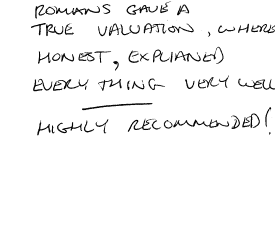 ROMANS GAVE A
TRUE VALUATION, WHERE
HONEST, EXPLIANED
EVERY THING VERY WELL
HIGHLY RECOMMENDED!